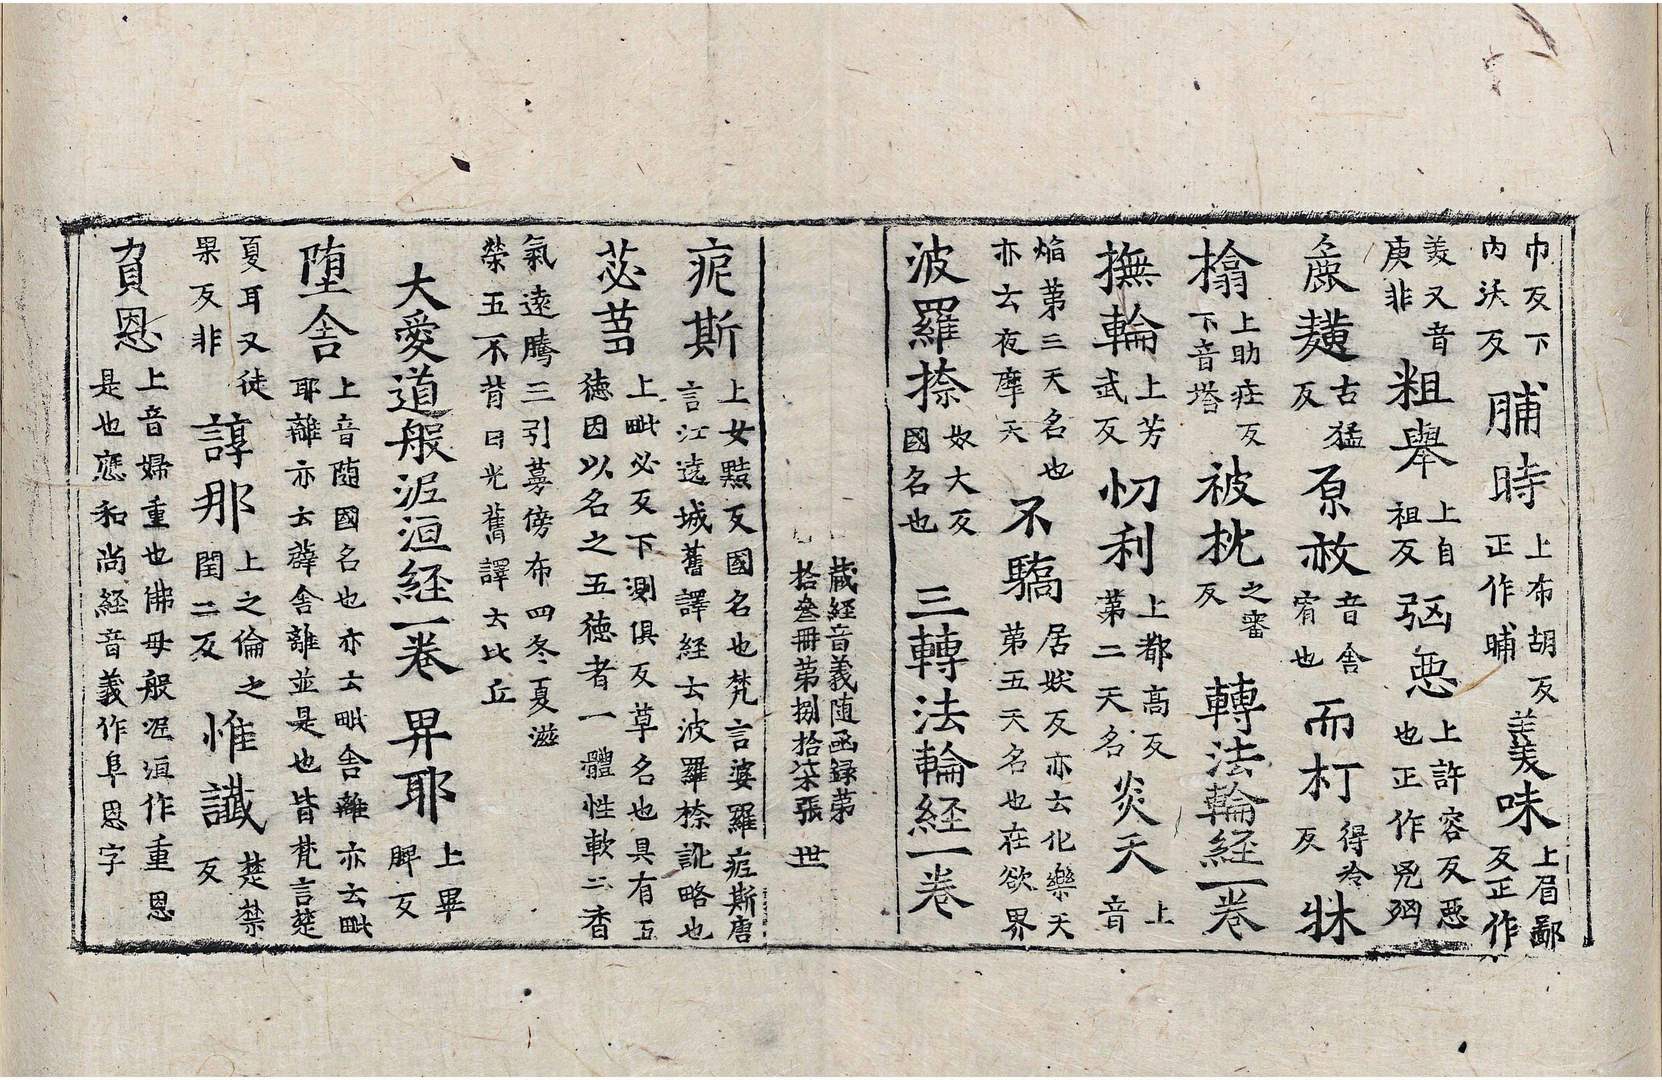 巾反下内沃反 脯時 上布胡反正作晡 羙味 上眉鄙反正作
羙又音庚非 粗舉 上自祖反 㓙惡 上許容反惡也正作兇㓙
麁䵃 古猛反 原赦 音舎宥也 而打 得冷反 牀
榻 上助庄反下音塔 被枕 之審反 轉法輪經一卷
撫輪 上芳武反 忉利 上都高反第二天名 炎天 上音
焔第三天名也亦云夜摩天 不驕 居妖反亦云化樂天第五天名也在欲界
波羅捺 奴大反國名也 三轉法輪經一卷
藏経音義随函録第拾叁冊第捌拾柒張 世
痆斯 上女黠反國名也梵言婆羅痆斯唐言江遶城舊譯経云波羅捺訛略也
苾蒭 上毗必反下測俱反草名也具有五德因以名之五德者一體性軟二香
氣遠騰三引蔓傍布四冬夏滋榮五不背日光舊譯云比丘
大愛道般泥洹経一卷 畀耶 上畢脾反
堕舎 上音随國名也亦云毗舎離亦云毗耶離亦云薜舎離並是也皆梵言楚
夏耳又徒果反非 諄那 上之倫之閏二反 惟讖 楚禁反
負恩 上音婦重也佛母般泥洹作重恩是也應和尚経音義作阜恩字